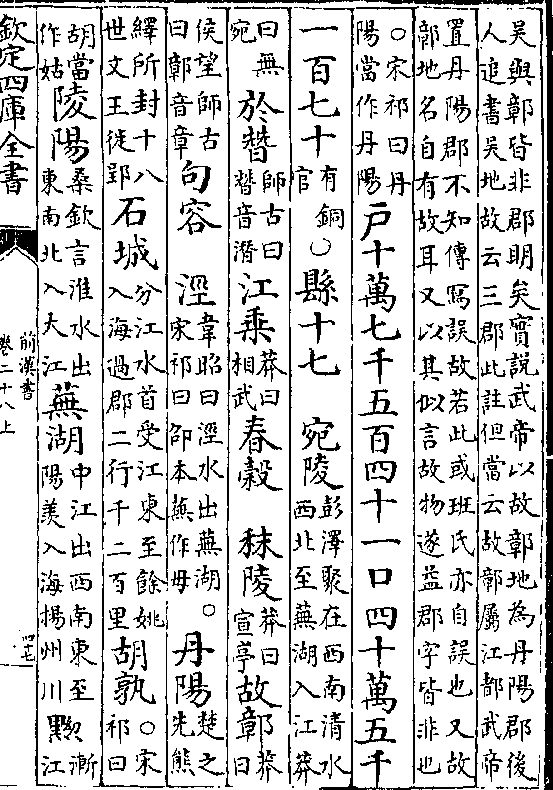 吳興鄣皆非郡明矣實説武帝以故鄣地為丹陽郡後
人追書吳地故云三郡此註但當云故鄣屬江都武帝
置丹陽郡不知傳寫誤故若此或班氏亦自誤也又故
鄣地名自有故耳又以其似言故物遂益郡字皆非也
○宋祁曰丹陽當作丹陽戶十萬七千五百四十一口四十萬五千
一百七十有銅官○縣十七 宛陵彭澤聚在西南清水西北至蕪湖入江莽
曰無宛於朁師古曰朁音潛江乗莽曰相武春穀 秣陵莽曰宣亭故鄣莽曰
侯望師古曰鄣音章句容 涇韋昭曰涇水出蕪湖○宋祁曰邵本蕪作毋丹陽楚之先熊
繹所封十八世文王徙郢石城分江水首受江東至餘姚入海過郡二行千二百里胡孰○宋祁曰
胡當作姑陵陽桑欽言淮水出東南北入大江蕪湖中江出西南東至陽羡入海揚州川黝漸江
欽定四庫全書
前漢書
卷二十八上